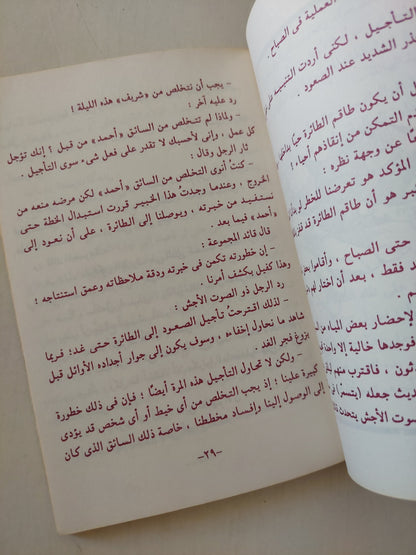 العملية فى الصباح .
التأجيل ، لكنى أردت التنبيه
الشديد عند الصعود .
أن يكون طاقم الطائرة حيا
التمكن من إنقاذهم أحياء !
عن وجهة نظره :
المؤكد هو تعرضنا للخطر
هو أن طاقم الطائرة قد
حتى الصباح ، وأقاموا
فقط ، بعد أن اختار لهم
لإحضار بعض المياه من
فوجدها خالية إلا
، فاقترب منهم
جعله
الأجش يتحدث
– يجب أن نتخلص من «شريف» هذه الليلة !
رد عليه آخر :
– ولماذا لم تتخلص من السائق «أحمد» من قبل ؟ إنك تؤجل
كل عمل ، وإنى لأحسبك لا تقدر على فعل شىء سوى التأجيل .
ثار الرجل وقال :
– كنتُ أنوى التخلص من السائق «أحمد» لكن مرضه منعه من
الخروج ، وعندما وجدتُ هذا الخبير قررت استبدال الخطة حتى
نستفيد من خبرته ، ويوصلنا إلى الطائرة ، على أن نعود إلى
«أحمد» فيما بعد .
قال قائد المجموعة :
– إن خطورته تكمن فى خبرته ودقة ملاحظاته وعمق استنتاجه ؛
وهذا كفيل بكشف أمرنا .
رد الرجل ذو الصوت الأجش :
– لذلك اقترحتُ تأجيل الصعود إلى الطائرة حتى غد ؛ فربما
شاهد ما نحاول إخفاءه ، وسوف يكون إلى جوار أجداده الأوائل قبل
بزوغ فجر الغد .
– ولكن لا تحاول التأجيل هذه المرة أيضًا ؛ فإن فى ذلك خطورة
كبيرة علينا ؛ إذ يجب التخلص من أى خيط أو أى شخص قد يؤدى
إلى الوصول إلينا وإفساد مخططنا ، خاصة ذلك السائق الذى كان
–٢٩–